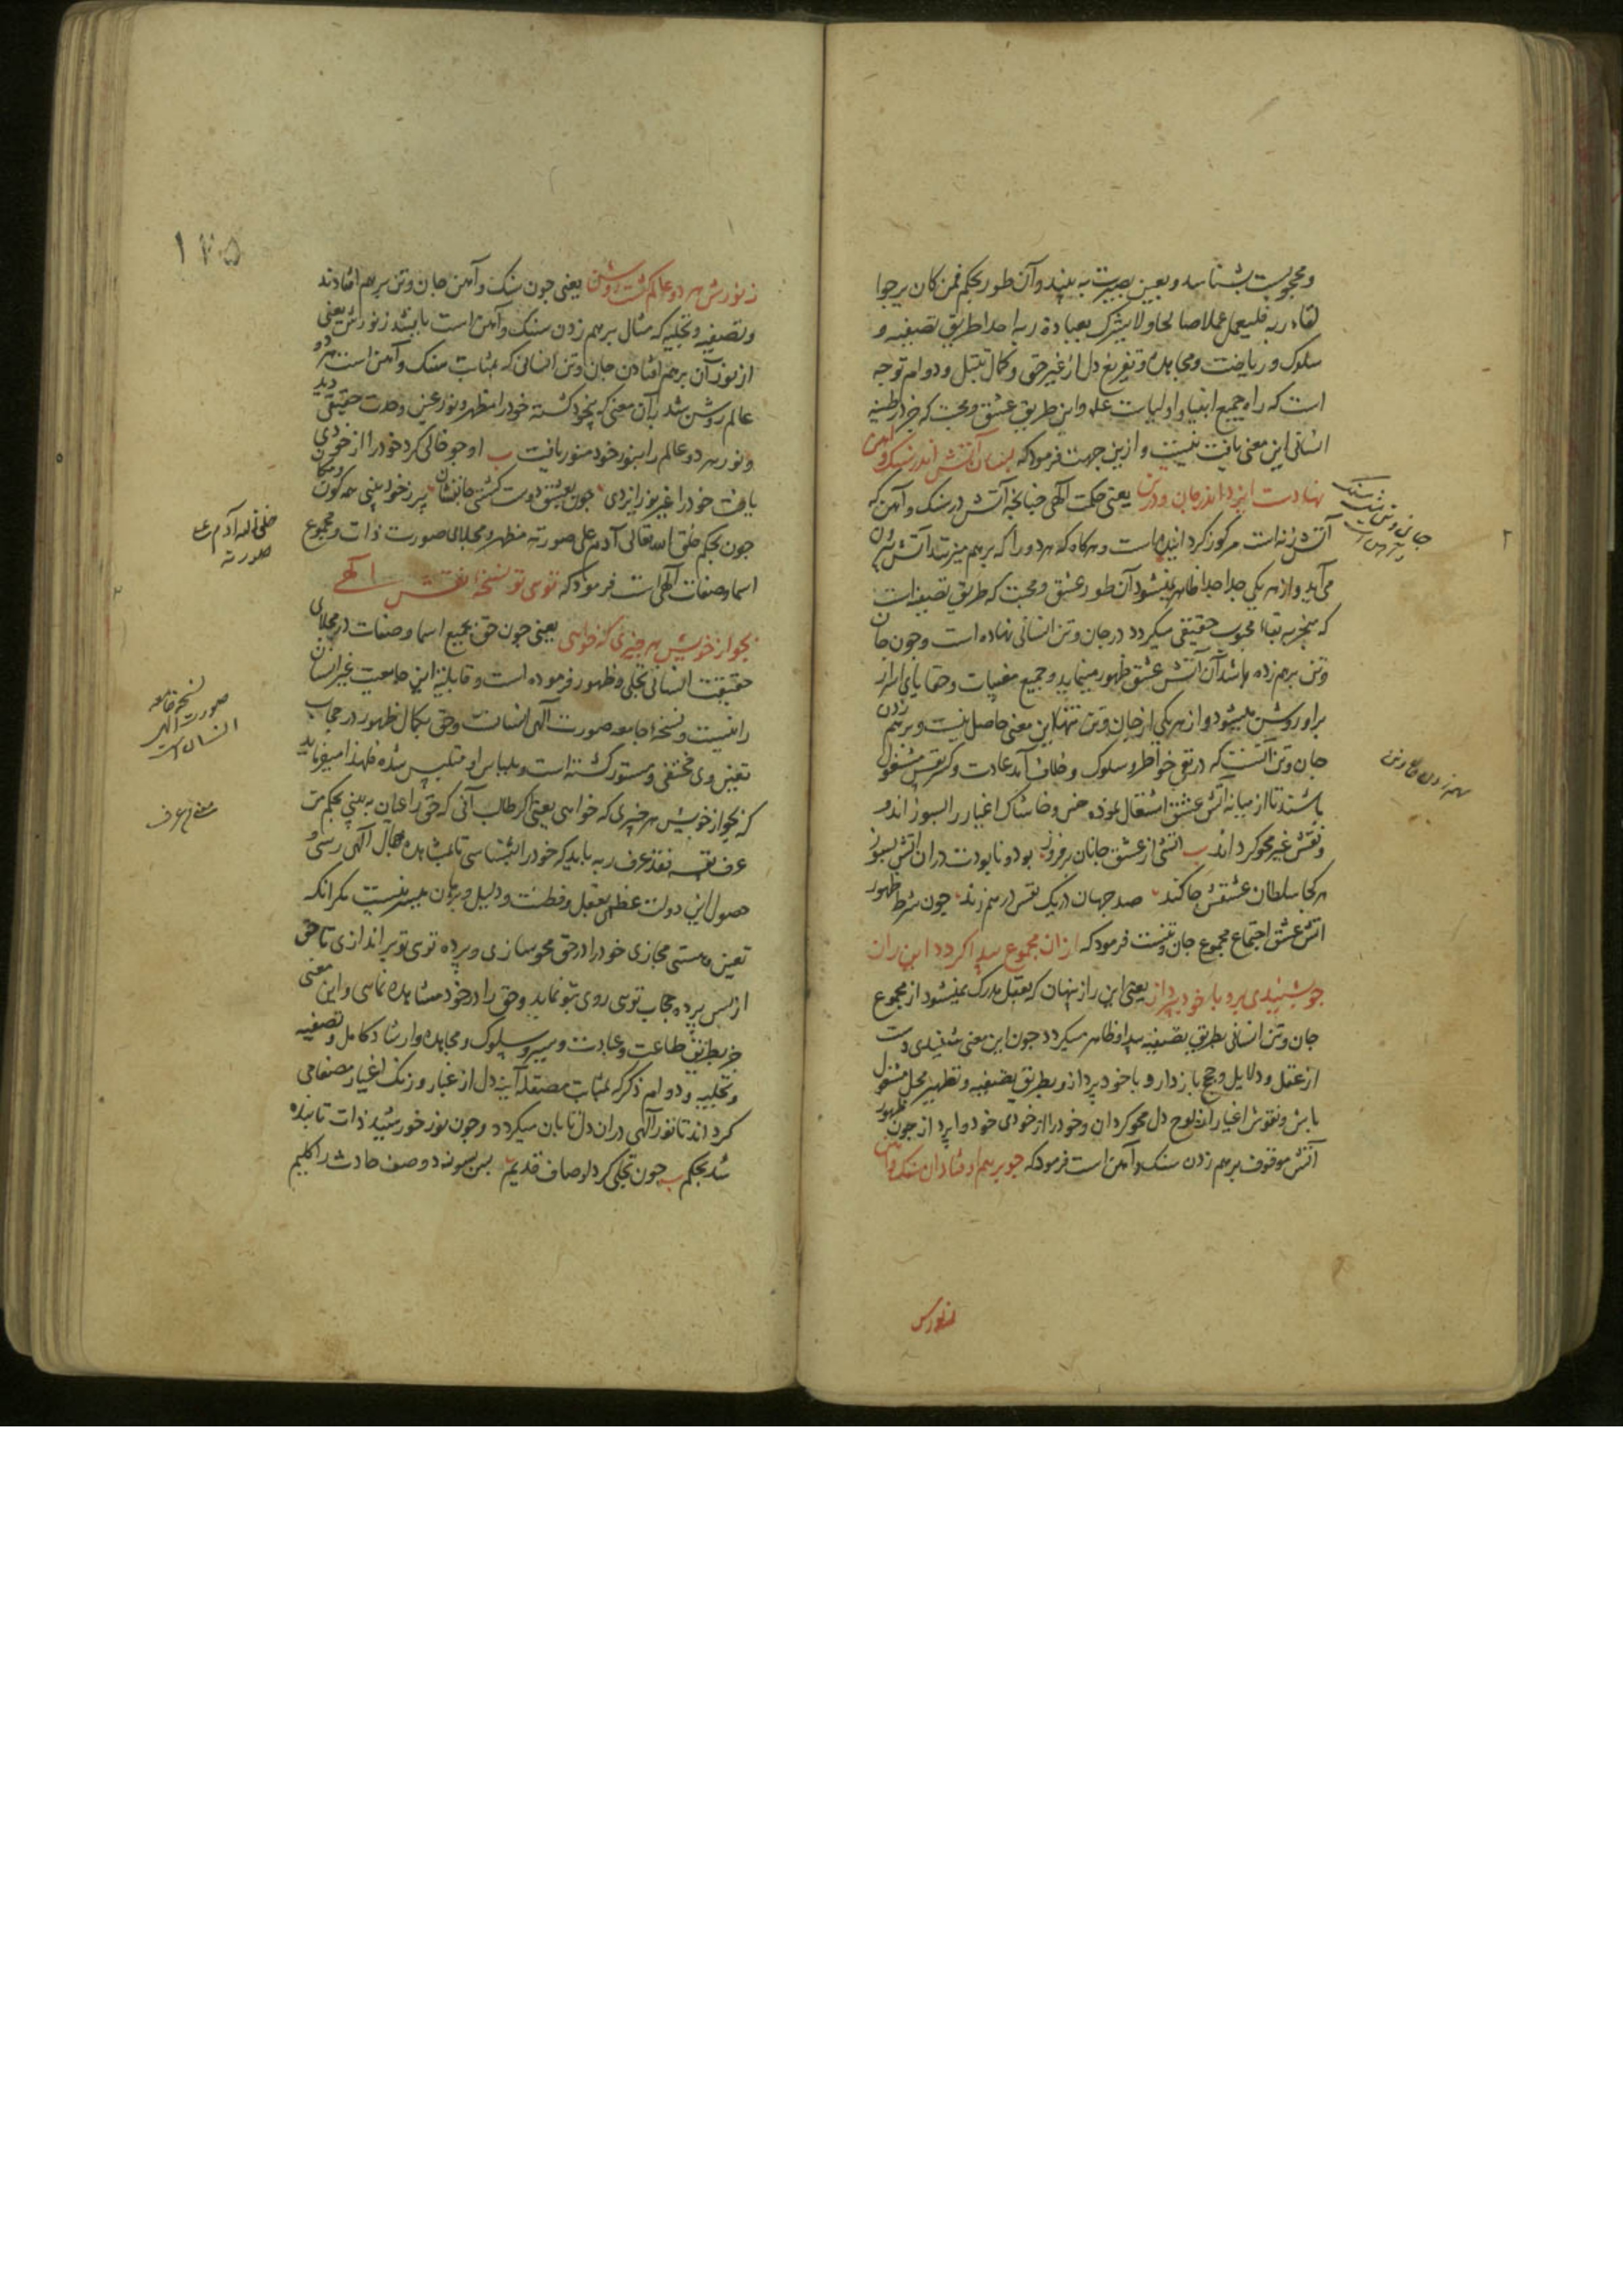 و محجوبست بشناسد و بعین بصیرت به بیند و آن طور بحکم فمن کان یرجوا
لقاء ربه فلیعمل عملا صالحا و لا یشرک بعبادة ربه احدا طریق تصفیه و
سلوک و ریاضت و مجاهده و تفریغ دل از غیر حق و کمال تبتل و دوام توجه
است که راه جمیع انبیا و اولیاست علم و این طریق عشق و محبت که جز در طینه
انسانی این معنی یافت نیست و ازین جهت فرمود که بسان آتش اندر سنک و آهن
نهادست ایزد اندر جان و در تن یعنی حکمت الهی چنانچه آتش در سنک و آهن که
آتش زنه است مرکوز کردانیده است و هرکاه که هر دو را که بر هم میزنند آتش بیرون
می آید و از هر یکی جدا جدا ظاهر نمیشود آن طور عشق و محبت که طریق تصفیه است
که منجر به بقاء محبوب حقیقی میکردد در جان و تن انسانی نهاده است و چون جان
و تن بر هم زده باشد آن آتش عشق ظهور مینماید و جمیع مغیبات و خفایای اسرار
برو روشن میشود و از هر یکی از جان و تن تنها این معنی حاصل نیست و بر هم زدن
جان و تن آنست که در نفی خواطر و سلوک و خلاف آمد عادت و کسر نفس مشغول
باشند تا از میانه آتش عشق اشتعال نموده خس و خاشاک اغیار را بسوزاند و
نقش غیر محو کرداند ب آتشی از عشق جانان برفروز بود و نابودت در آن آتش بسوز
هر کجا سلطان عشقش جا کند صد جهان در یک نفس بر هم زند چون شرط ظهور
آتش عشق اجتماع مجموع جان و تنست فرمود که از آن مجموع پیدا کردد این راز
چو بشنیدی برو با خود بپرداز یعنی این راز پنهان که بعقل مدرک نمیشود از مجموع
جان و تن انسانی بطریق تصفیه پیدا و ظاهر میکردد چون این معنی شنیدی دست
از عقل و دلایل و حجج باز دار و با خود پرداز و بطریق تصفیه و تطهیر محل مشغول
باش و نقوش اغیار از لوح دل محو کردان و خود را از خودی خود وا پرداز چون ظهور
آتش موقوف بر هم زدن سنک و آهن است فرمود که چو بر هم اوفتاد آن سنک و آهن
جان و تن سنک
و آهن است
بر هم زدن جان و تن
ز نورش
۱۲۵
ز نورش هر دو عالم کشت روشن یعنی چون سنک و آهن جان و تن بر هم افتادند
و تصفیه و تخلیه که مثال بر هم زدن سنک و آهن است یابیند ز نورش یعنی
از نور آن بر هم افتادن جان و تن انسانی که بمثابت سنک و آهن است هر دو
عالم روشن شد بآن معنی که بیخود کشته خود را مظهر و نور عین وحدت حقیقی دید
و نور هر دو عالم را بنور خود منور یافت ب او چو خالی کرد خود را از خودی
یافت خود را غیر نور ایزدی چون بعشق دوست کشتی جانفشان پر ز خود بینی همه کون و مکان
چون بحکم خلق الله تعالی آدم علی صورته مظهر و مجلای صورت ذات و مجموع
اسما و صفات الهی است فرمود که توی تو نسخهٔ نقش الهی
بجو از خویش هر چیزی که خواهی یعنی چون حق بجمیع اسما و صفات در مجلای
حقیقت انسانی تجلی و ظهور فرموده است و قابلیت این جامعیت غیر انسان
را نیست و نسخهٔ جامعه صورت الهی انسانست و حق بکمال ظهور در حجاب
تعین وی مختفی و مستور کشته است و بلباس او متلبس شده فلهذا میفرماید
که بجو از خویش هر چیزی که خواهی یعنی اکر طالب آنی که حق را عیان به بینی بحکم من
عرف نفسه فقد عرف ربه باید که خود را بشناسی تا بمشاهده جمال الهی رسی و
حصول این دولت عظمی بعقل و فطنت و دلیل و برهان میسر نیست مکر آنکه
تعین و هستی مجازی خود را در حق محو سازی و پرده توی تو بر اندازی تا حق
از پس پرده حجاب توی روی بتو نماید و حق را در خود مشاهده نمائی و این معنی
جز بطریق طاعت و عبادت و سیر و سلوک و مجاهده و ارشاد کامل و تصفیه
و تخلیه و دوام ذکر که بمثابت مصقله آینه دل از غبار و زنک اغیار مصفا می
کرداند تا نور الهی در آن دل تابان میکردد و چون نور خورشید ذات تابنده
شد بحکم ب چون تجلی کرد اوصاف قدیم پس بسوزد وصف حادث را کلیم
خلق الله آدم علی
صورته
نسخه جامعه
صورت الهی
انسان است
معنی من عرف